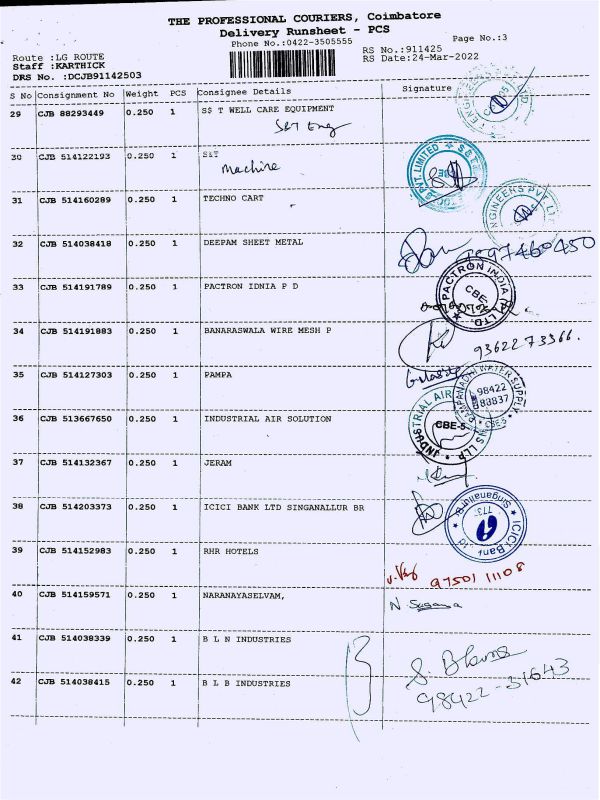 THE PROFESSIONAL COURIERS, Coimbatore
Delivery Runsheet - PCS
Phone No.:0422-3505555
Page No.:3
Route :LG ROUTE
RS No.:911425
Staff :KARTHICK
RS Date:24-Mar-2022
DRS No. :DCJB91142503
S No Consignment No Weight PCS Consignee Details Signature
29 CJB 88293449 0.250 1 S$ T WELL CARE EQUIPMENT
S&T Eng
30 CJB 514122193 0.250 1 S&T
Machine
31 CJB 514160289 0.250 1 TECHNO CART
32 CJB 514038418 0.250 1 DEEPAM SHEET METAL
33 CJB 514191789 0.250 1 PACTRON IDNIA P D
PACTRON INDIA (P) LTD.
CBE-
34 CJB 514191883 0.250 1 BANARASWALA WIRE MESH P
93622 73366.
35 CJB 514127303 0.250 1 PAMPA
WATER SUPPLY
98422
83837
CBE-5
36 CJB 513667650 0.250 1 INDUSTRIAL AIR SOLUTION
INDUSTRIAL AIR
LLP
CBE-5
37 CJB 514132367 0.250 1 JERAM
38 CJB 514203373 0.250 1 ICICI BANK LTD SINGANALLUR BR
ICICI Bank Ltd
Singanallur Br.
773
39 CJB 514152983 0.250 1 RHR HOTELS
97501 11108
40 CJB 514159571 0.250 1 NARANAYASELVAM,
41 CJB 514038339 0.250 1 B L N INDUSTRIES
42 CJB 514038415 0.250 1 B L B INDUSTRIES
98422-31643